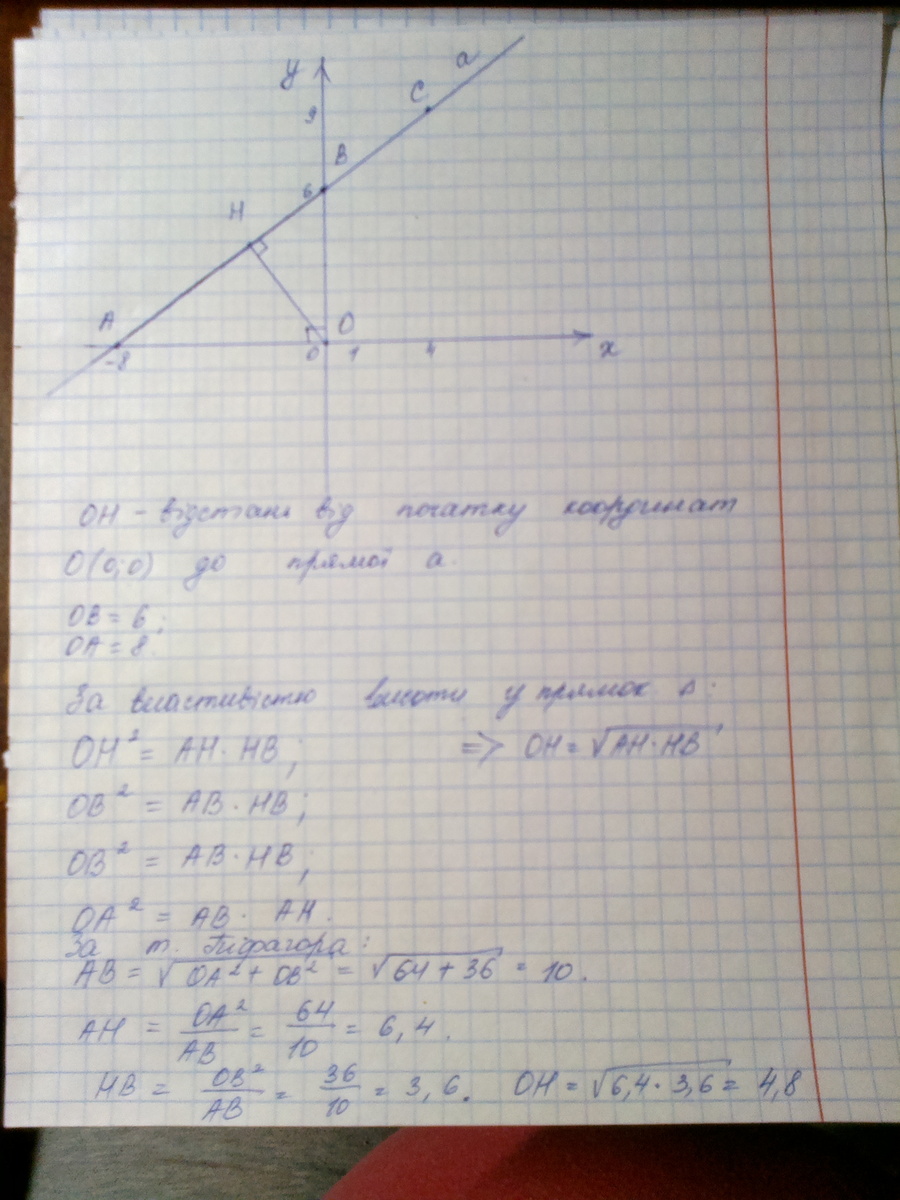 y
a
C
9
B
6
H
A
O
-8
0 1 4
x
OH - відстань від початку координат
O(0;0) до прямої a.
OB = 6;
OA = 8
За властивістю висоти у прямок Δ:
OH² = AH · HB; => OH = √AH·HB
OB² = AB · HB;
OB² = AB · HB;
OA² = AB · AH.
За т. Піфагора:
AB = √OA² + OB² = √64 + 36 = 10.
AH = OA²/AB = 64/10 = 6,4.
HB = OB²/AB = 36/10 = 3,6. OH = √6,4 · 3,6 = 4,8